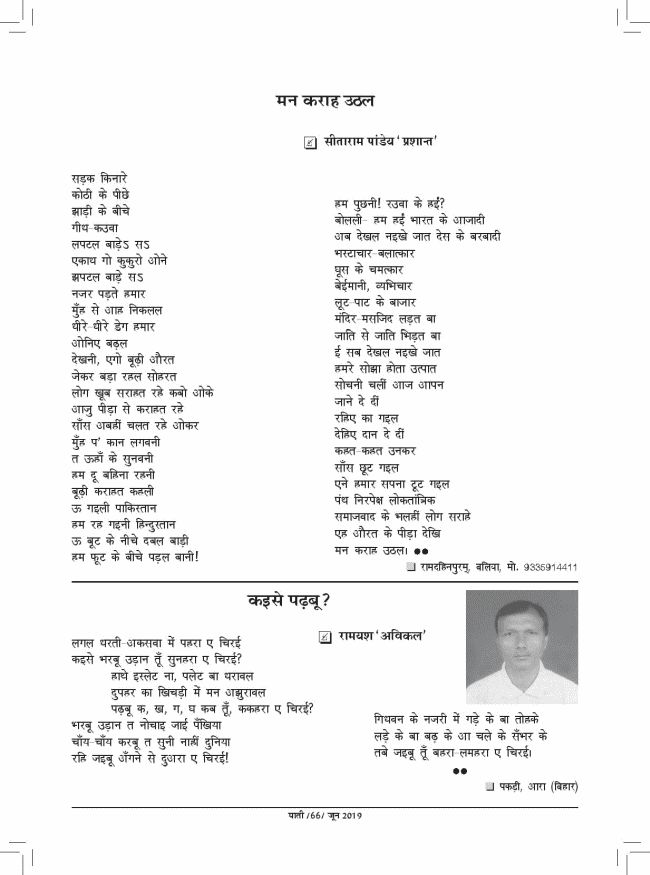 मन कराह उठल
सीताराम पांडेय ‘प्रशान्त’
सड़क किनारे
कोठी के पीछे
झाड़ी के बीचे
गीध-कउवा
लपटल बाड़ेऽ सऽ
एकाध गो कुकुरो ओने
झपटल बाड़े सऽ
नजर पड़ते हमार
मुँह से आह निकलल
धीरे-धीरे डेग हमार
ओनिए बढ़ल
देखनी, एगो बूढ़ी औरत
जेकर बड़ा रहल सोहरत
लोग खूब सराहत रहे कबो ओके
आजु पीड़ा से कराहत रहे
साँस अबहीं चलत रहे ओकर
मुँह प' कान लगवनी
त ऊहाँ के सुनवनी
हम दू बहिना रहनी
बूढ़ी कराहत कहली
ऊ गइली पाकिस्तान
हम रह गइनी हिन्दुस्तान
ऊ बूट के नीचे दबल बाड़ी
हम फूट के बीचे पड़ल बानी!
हम पुछनी! रउवा के हईं?
बोलली- हम हईं भारत के आजादी
अब देखल नइखे जात देस के बरबादी
भरटाचार-बलात्कार
घूस के चमत्कार
बेईमानी, व्यभिचार
लूट-पाट के बाजार
मंदिर-मसजिद लड़त बा
जाति से जाति भिड़त बा
ई सब देखल नइखे जात
हमरे सोझा होता उत्पात
सोचनी चलीं आज आपन
जाने दे दीं
रहिए का गइल
देहिए दान दे दीं
कहत-कहत उनकर
साँस छूट गइल
एने हमार सपना टूट गइल
पंथ निरपेक्ष लोकतांत्रिक
समाजवाद के भलहीं लोग सराहे
एह औरत के पीड़ा देखि
मन कराह उठल। ●●
रामदहिनपुरम्, बलिया, मो. 9335914411
कइसे पढ़बू?
रामयश ‘अविकल’
लगल धरती-अकसवा में पहरा ए चिरई
कइसे भरबू उड़ान तूँ सुनहरा ए चिरई?
हाथे इस्लेट ना, पलेट बा धरावल
दुपहर का खिचड़ी में मन अझुरावल
पढ़बू क, ख, ग, घ कब तूँ, ककहरा ए चिरई?
भरबू उड़ान त नोचाइ जाई पँखिया
चाँय-चाँय करबू त सुनी नाहीं दुनिया
रहि जइबू अँगने से दुअरा ए चिरई!
गिधवन के नजरी में गड़े के बा तोहके
लड़े के बा बढ़ के आ चले के सँभर के
तबे जइबू तूँ बहरा-लमहरा ए चिरई।
●●
पकड़ी, आरा (बिहार)
पाती /66/ जून 2019